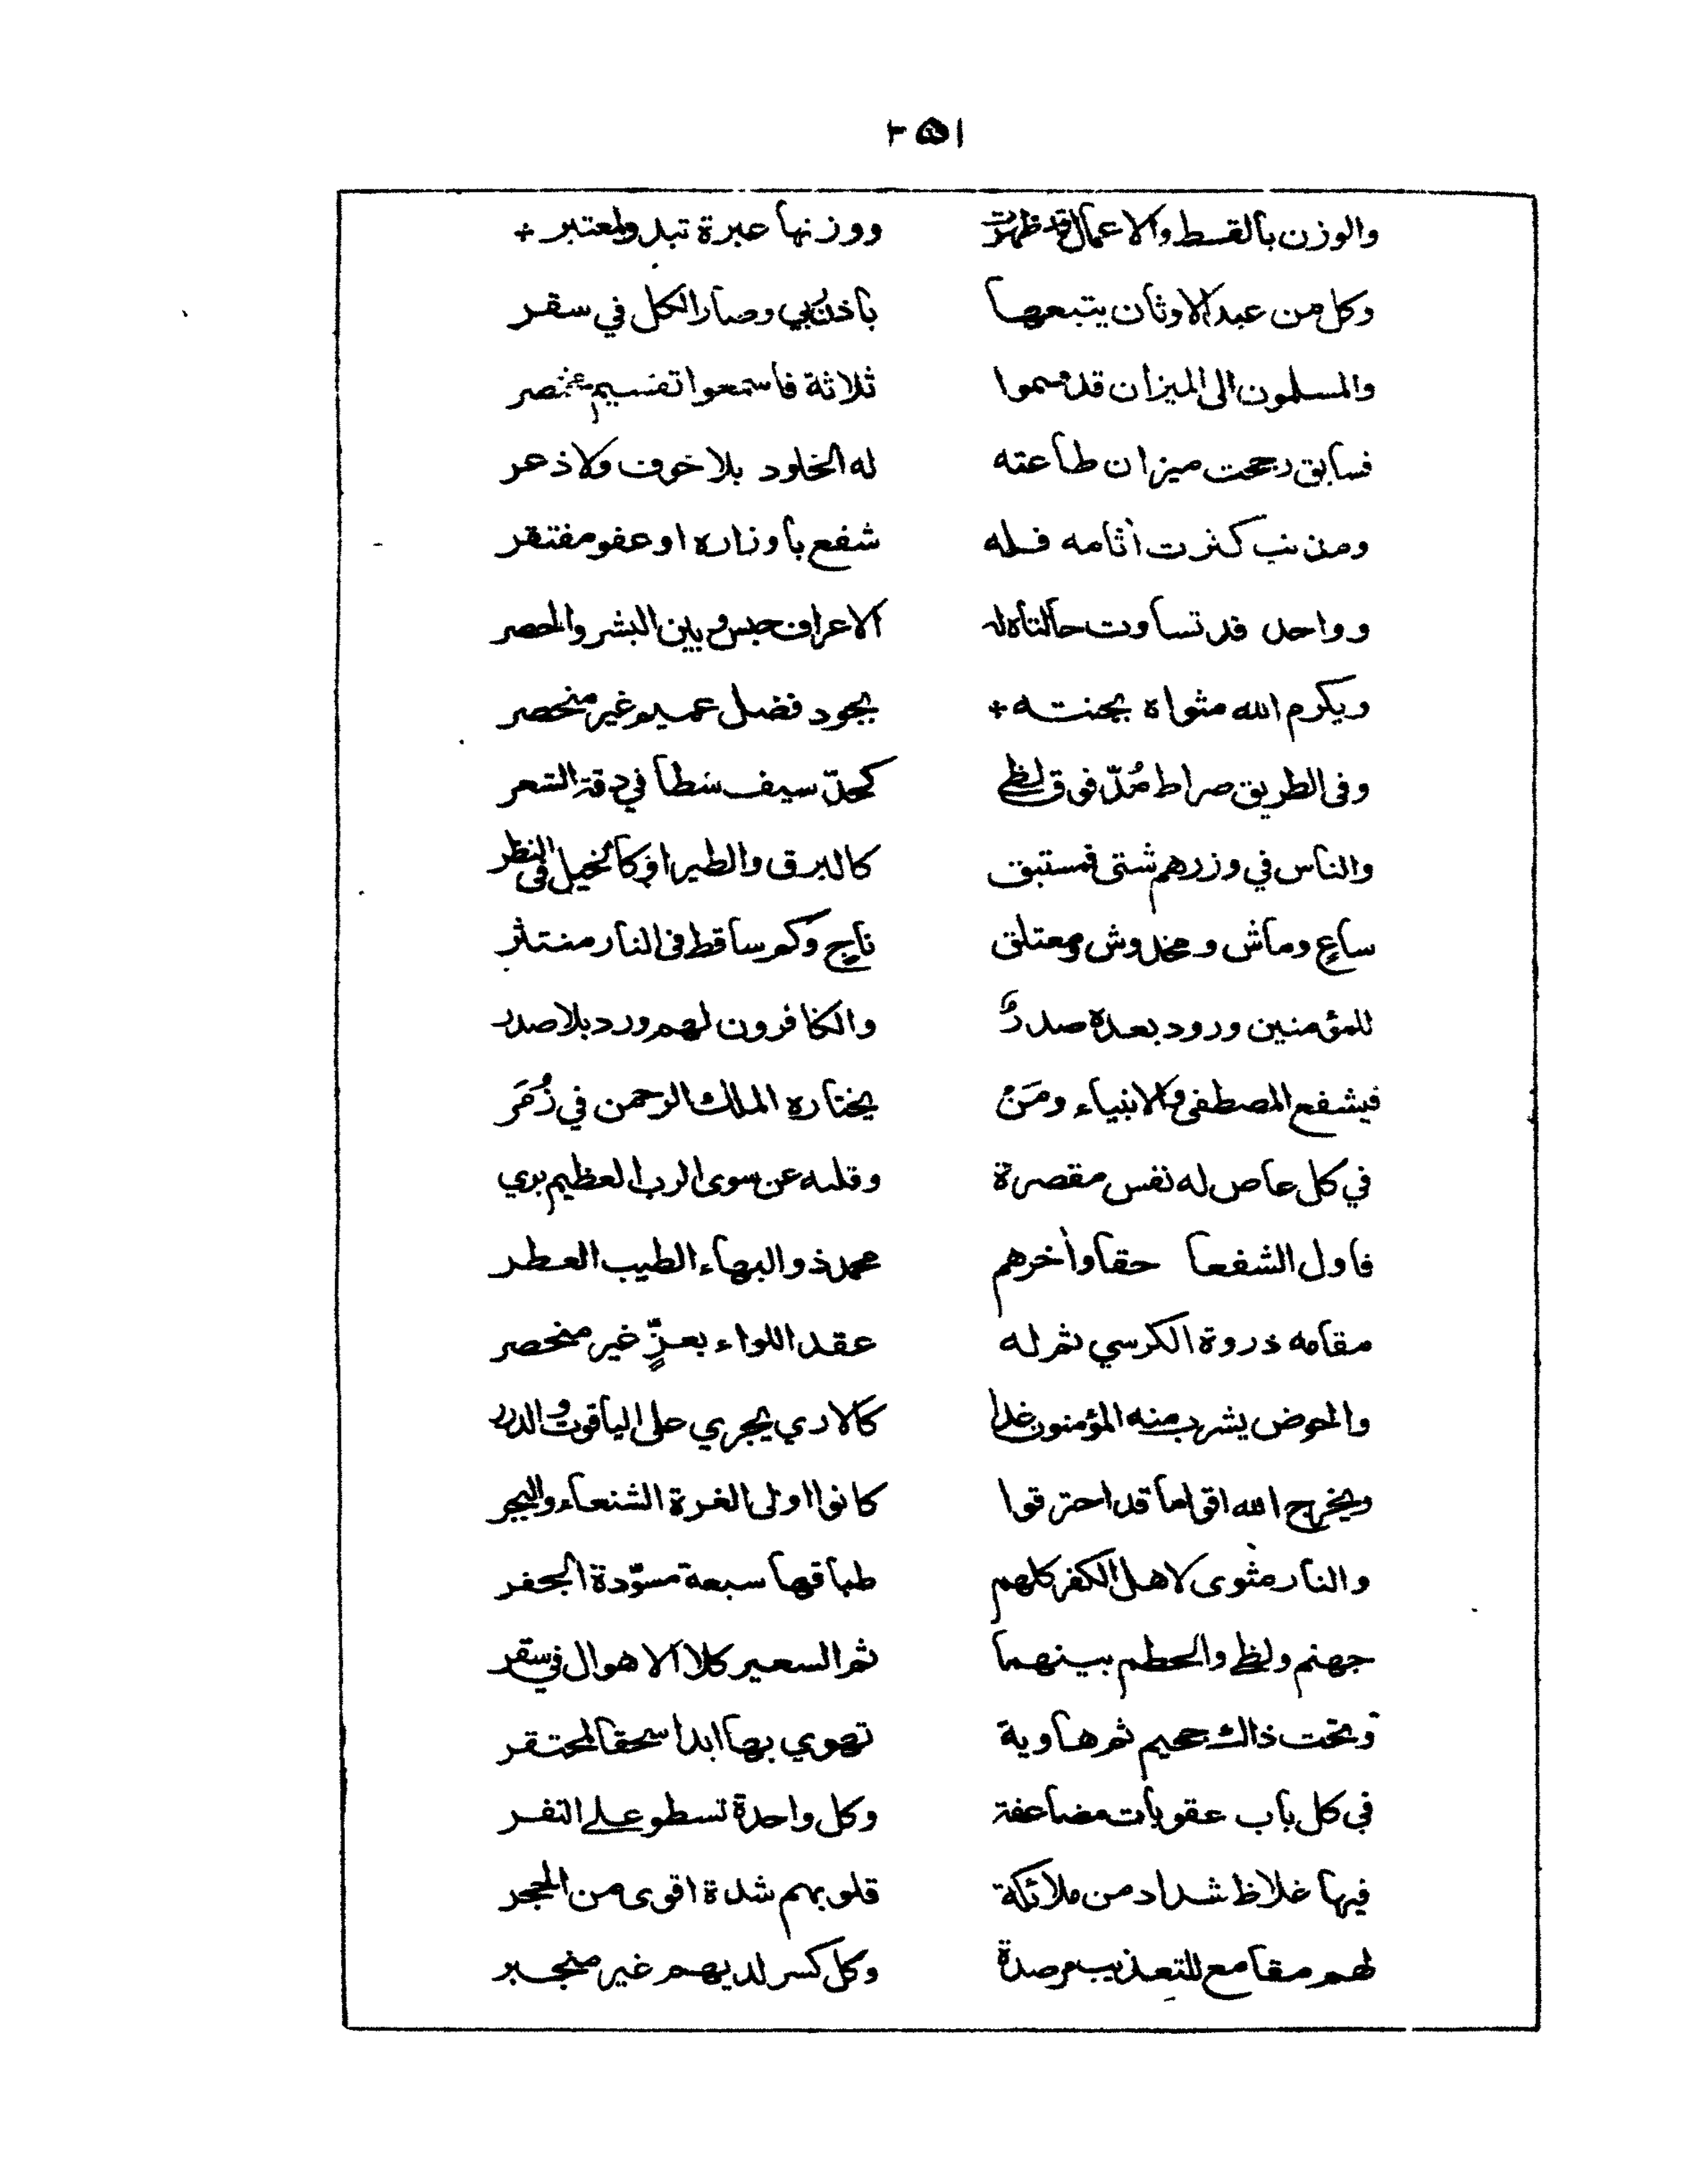 ٢٥١
والوزن بالقسط والاعمال قد ظهرت ووزنها عبرة تبدو لمعتبر
وكل من عبد الاوثان يتبعها باذن ربي وصار الكل في سقر
والمسلمون الى الميزان قد قسموا ثلاثة فاسمعوا تقسيم مختصر
فسابق رجحت ميزان طاعته له الخلود بلا خوف ولا ذعر
ومذنب كثرت اثامه فله شفع باوزاره او عفو مفتقر
وواحد قد تساوت حالتاه له الاعراف حبس وبين البشر والحصر
ويكرم الله مثواه بجنته بجود فضل عميم غير منحصر
وفى الطريق صراط مُدّ فوق لظى كحدّ سيف سطا في دقة الشعر
والناس في وزرهم شتى فمستبق كالبرق والطير او كالخيل فى النظر
ساعٍ وماش ومخدوش ومعتلق ناجٍ وكم ساقط فى النار منتثر
للمؤمنين ورود بعده صدرٌ والكافرون لهم ورد بلا صدر
فيشفع المصطفى والانبياء ومَنْ يختاره الملك الرحمن في زُمَر
في كل عاص له نفس مقصرة وقلبه عن سوى الرب العظيم بري
فاول الشفعا حقا واٰخرهم محمد ذو البهاء الطيب العطر
مقامه ذروة الكرسي ثم له عقد اللواء بعزٍّ غير منحصر
والحوض يشرب منه المؤمنون غدا كالاري يجري على الياقوت والدرر
ويخرج الله اقواما قد احترقوا كانوا اولى الغرة الشنعاء والبجر
والنار مثوى لاهل الكفر كلهم طباقها سبعة مسوّدة الحفر
جهنم ولظى والحطم بينهما ثم السعير كلا الاهوال في سقر
وتحت ذاك جحيم ثم هاوية تهوي بها ابدا سحقا لمحتقر
في كل باب عقوبات مضاعفة وكل واحدة تسطو على النفر
فيها غلاظ شداد من ملائكة قلوبهم شدة اقوى من الحجر
لهم مقامع للتعذيب مرصدة وكل كسر لديهم غير منجبر